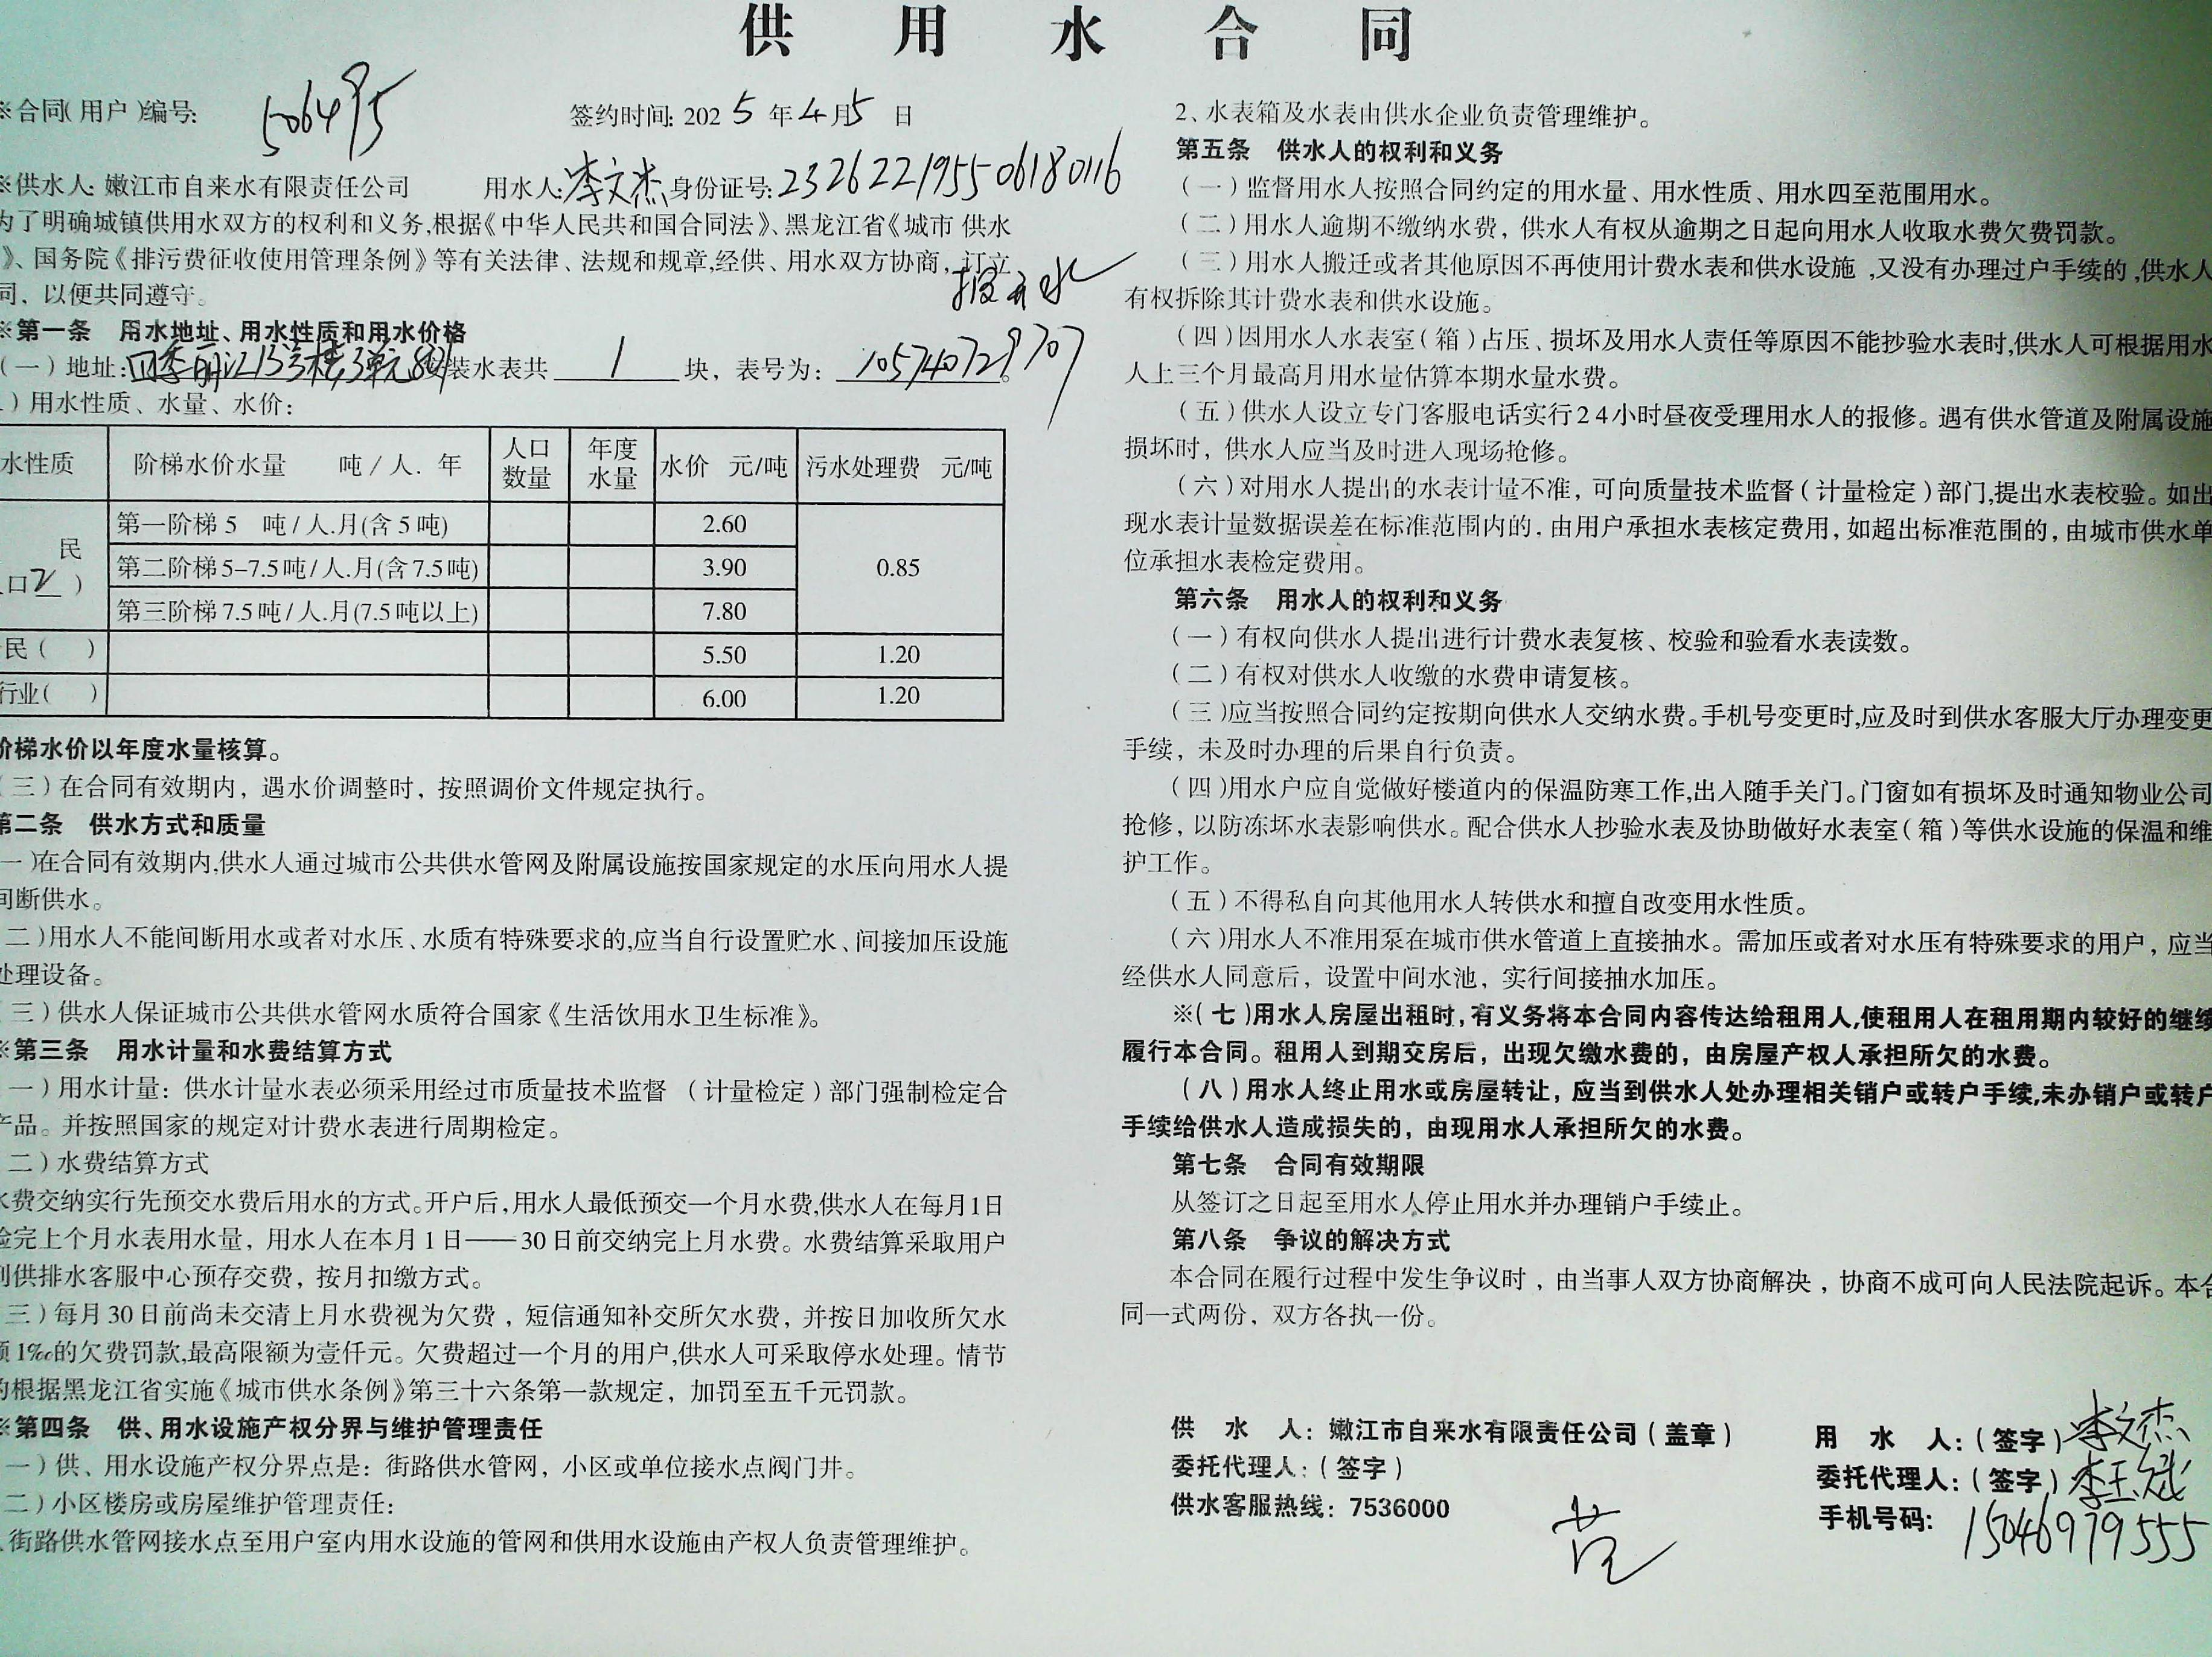 供用水合同
※合同(用户)编号: 506495
签约时间: 2025年4月5日
※供水人: 嫩江市自来水有限责任公司 用水人: 李文杰 身份证号: 232622195506180116
为了明确城镇供用水双方的权利和义务,根据《中华人民共和国合同法》、黑龙江省《城市 供水
》、国务院《排污费征收使用管理条例》等有关法律、法规和规章,经供、用水双方协商,订立
同，以便共同遵守。
※第一条 用水地址、用水性质和用水价格
(一)地址: 四季丽江13号楼3单元801 安装水表共 1 块，表号为: 105740729707。
)用水性质、水量、水价:
水性质 阶梯水价水量 吨/人.年 人口数量 年度水量 水价 元/吨 污水处理费 元/吨
民 第一阶梯 5 吨/人.月(含 5 吨) 2.60 0.85
口2) 第二阶梯 5-7.5 吨/人.月(含 7.5 吨) 3.90
第三阶梯 7.5 吨/人.月(7.5 吨以上) 7.80
民( ) 5.50 1.20
行业( ) 6.00 1.20
阶梯水价以年度水量核算。
(三)在合同有效期内，遇水价调整时，按照调价文件规定执行。
第二条 供水方式和质量
一)在合同有效期内,供水人通过城市公共供水管网及附属设施按国家规定的水压向用水人提
间断供水。
二)用水人不能间断用水或者对水压、水质有特殊要求的,应当自行设置贮水、间接加压设施
处理设备。
三)供水人保证城市公共供水管网水质符合国家《生活饮用水卫生标准》。
※第三条 用水计量和水费结算方式
一)用水计量: 供水计量水表必须采用经过市质量技术监督 (计量检定)部门强制检定合
产品。并按照国家的规定对计费水表进行周期检定。
二)水费结算方式
水费交纳实行先预交水费后用水的方式。开户后,用水人最低预交一个月水费,供水人在每月1日
验完上个月水表用水量，用水人在本月 1 日——30 日前交纳完上月水费。水费结算采取用户
到供排水客服中心预存交费，按月扣缴方式。
三)每月 30 日前尚未交清上月水费视为欠费，短信通知补交所欠水费，并按日加收所欠水
额 1‰的欠费罚款,最高限额为壹仟元。欠费超过一个月的用户,供水人可采取停水处理。情节
的根据黑龙江省实施《城市供水条例》第三十六条第一款规定，加罚至五千元罚款。
※第四条 供、用水设施产权分界与维护管理责任
一)供、用水设施产权分界点是: 街路供水管网，小区或单位接水点阀门井。
二)小区楼房或房屋维护管理责任:
、街路供水管网接水点至用户室内用水设施的管网和供用水设施由产权人负责管理维护。
2、水表箱及水表由供水企业负责管理维护。
第五条 供水人的权利和义务
(一)监督用水人按照合同约定的用水量、用水性质、用水四至范围用水。
(二)用水人逾期不缴纳水费，供水人有权从逾期之日起向用水人收取水费欠费罚款。
(三)用水人搬迁或者其他原因不再使用计费水表和供水设施,又没有办理过户手续的,供水人
有权拆除其计费水表和供水设施。
(四)因用水人水表室(箱)占压、损坏及用水人责任等原因不能抄验水表时,供水人可根据用水
人上三个月最高月用水量估算本期水量水费。
(五)供水人设立专门客服电话实行24小时昼夜受理用水人的报修。遇有供水管道及附属设施
损坏时，供水人应当及时进入现场抢修。
(六)对用水人提出的水表计量不准，可向质量技术监督(计量检定)部门,提出水表校验。如出
现水表计量数据误差在标准范围内的，由用户承担水表核定费用，如超出标准范围的，由城市供水单
位承担水表检定费用。
第六条 用水人的权利和义务
(一)有权向供水人提出进行计费水表复核、校验和验看水表读数。
(二)有权对供水人收缴的水费申请复核。
(三)应当按照合同约定按期向供水人交纳水费。手机号变更时,应及时到供水客服大厅办理变更
手续，未及时办理的后果自行负责。
(四)用水户应自觉做好楼道内的保温防寒工作,出入随手关门。门窗如有损坏及时通知物业公司
抢修，以防冻坏水表影响供水。配合供水人抄验水表及协助做好水表室(箱)等供水设施的保温和维
护工作。
(五)不得私自向其他用水人转供水和擅自改变用水性质。
(六)用水人不准用泵在城市供水管道上直接抽水。需加压或者对水压有特殊要求的用户，应当
经供水人同意后，设置中间水池，实行间接抽水加压。
※(七)用水人房屋出租时,有义务将本合同内容传达给租用人,使租用人在租用期内较好的继续
履行本合同。租用人到期交房后，出现欠缴水费的，由房屋产权人承担所欠的水费。
(八)用水人终止用水或房屋转让，应当到供水人处办理相关销户或转户手续,未办销户或转户
手续给供水人造成损失的，由现用水人承担所欠的水费。
第七条 合同有效期限
从签订之日起至用水人停止用水并办理销户手续止。
第八条 争议的解决方式
本合同在履行过程中发生争议时，由当事人双方协商解决，协商不成可向人民法院起诉。本合
同一式两份，双方各执一份。
供 水 人: 嫩江市自来水有限责任公司(盖章)
委托代理人:(签字)
供水客服热线: 7536000
用 水 人:(签字) 李文杰
委托代理人:(签字) 李玉斌
手机号码: 15046979555